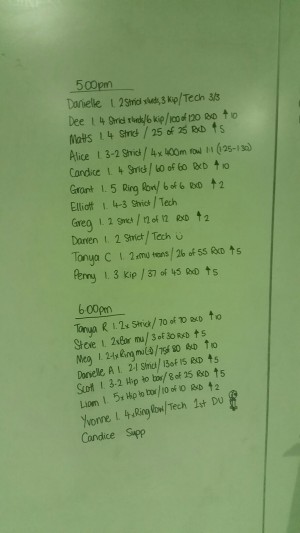 5:00pm
Danielle 1. 2 Strict 3 Kip / Tech 3/3
Dee 1. 4 Strict 6 Kip / 100 of 120 RXD ↑10
Matts 1. 4 Strict / 25 of 25 RXD ↑5
Alice 1. 3-2 Strict / 4x 400m row 1:1 (1:25-1:30)
Candice 1. 4 Strict / 60 of 60 RXD ↑10
Grant 1. 5 Ring Row / 6 of 6 RXD ↑2
Elliott 1. 4-3 Strict / Tech
Greg 1. 2 Strict / 12 of 12 RXD ↑2
Darren 1. 2 Strict / Tech
Tanya C 1. 2x mu trans / 26 of 55 RXD ↑5
Penny 1. 3 Kip / 37 of 45 RXD ↑5
6:00pm
Tanya R 1. 2x Strict / 70 of 70 RXD ↑10
Steve 1. 2x Bar mu / 3 of 30 RXD ↑5
Meg 1. 2-1x Ring mu / 75 of 80 RXD ↑10
Danielle A 1. 2-1 Strict / 13 of 15 RXD ↑5
Scott 1. 3-2 Hip to bar / 8 of 25 RXD ↑5
Liam 1. 5x Hip to bar / 10 of 10 RXD ↑2
Yvonne 1. 4x Ring Row / Tech 1st DU
Candice Supp